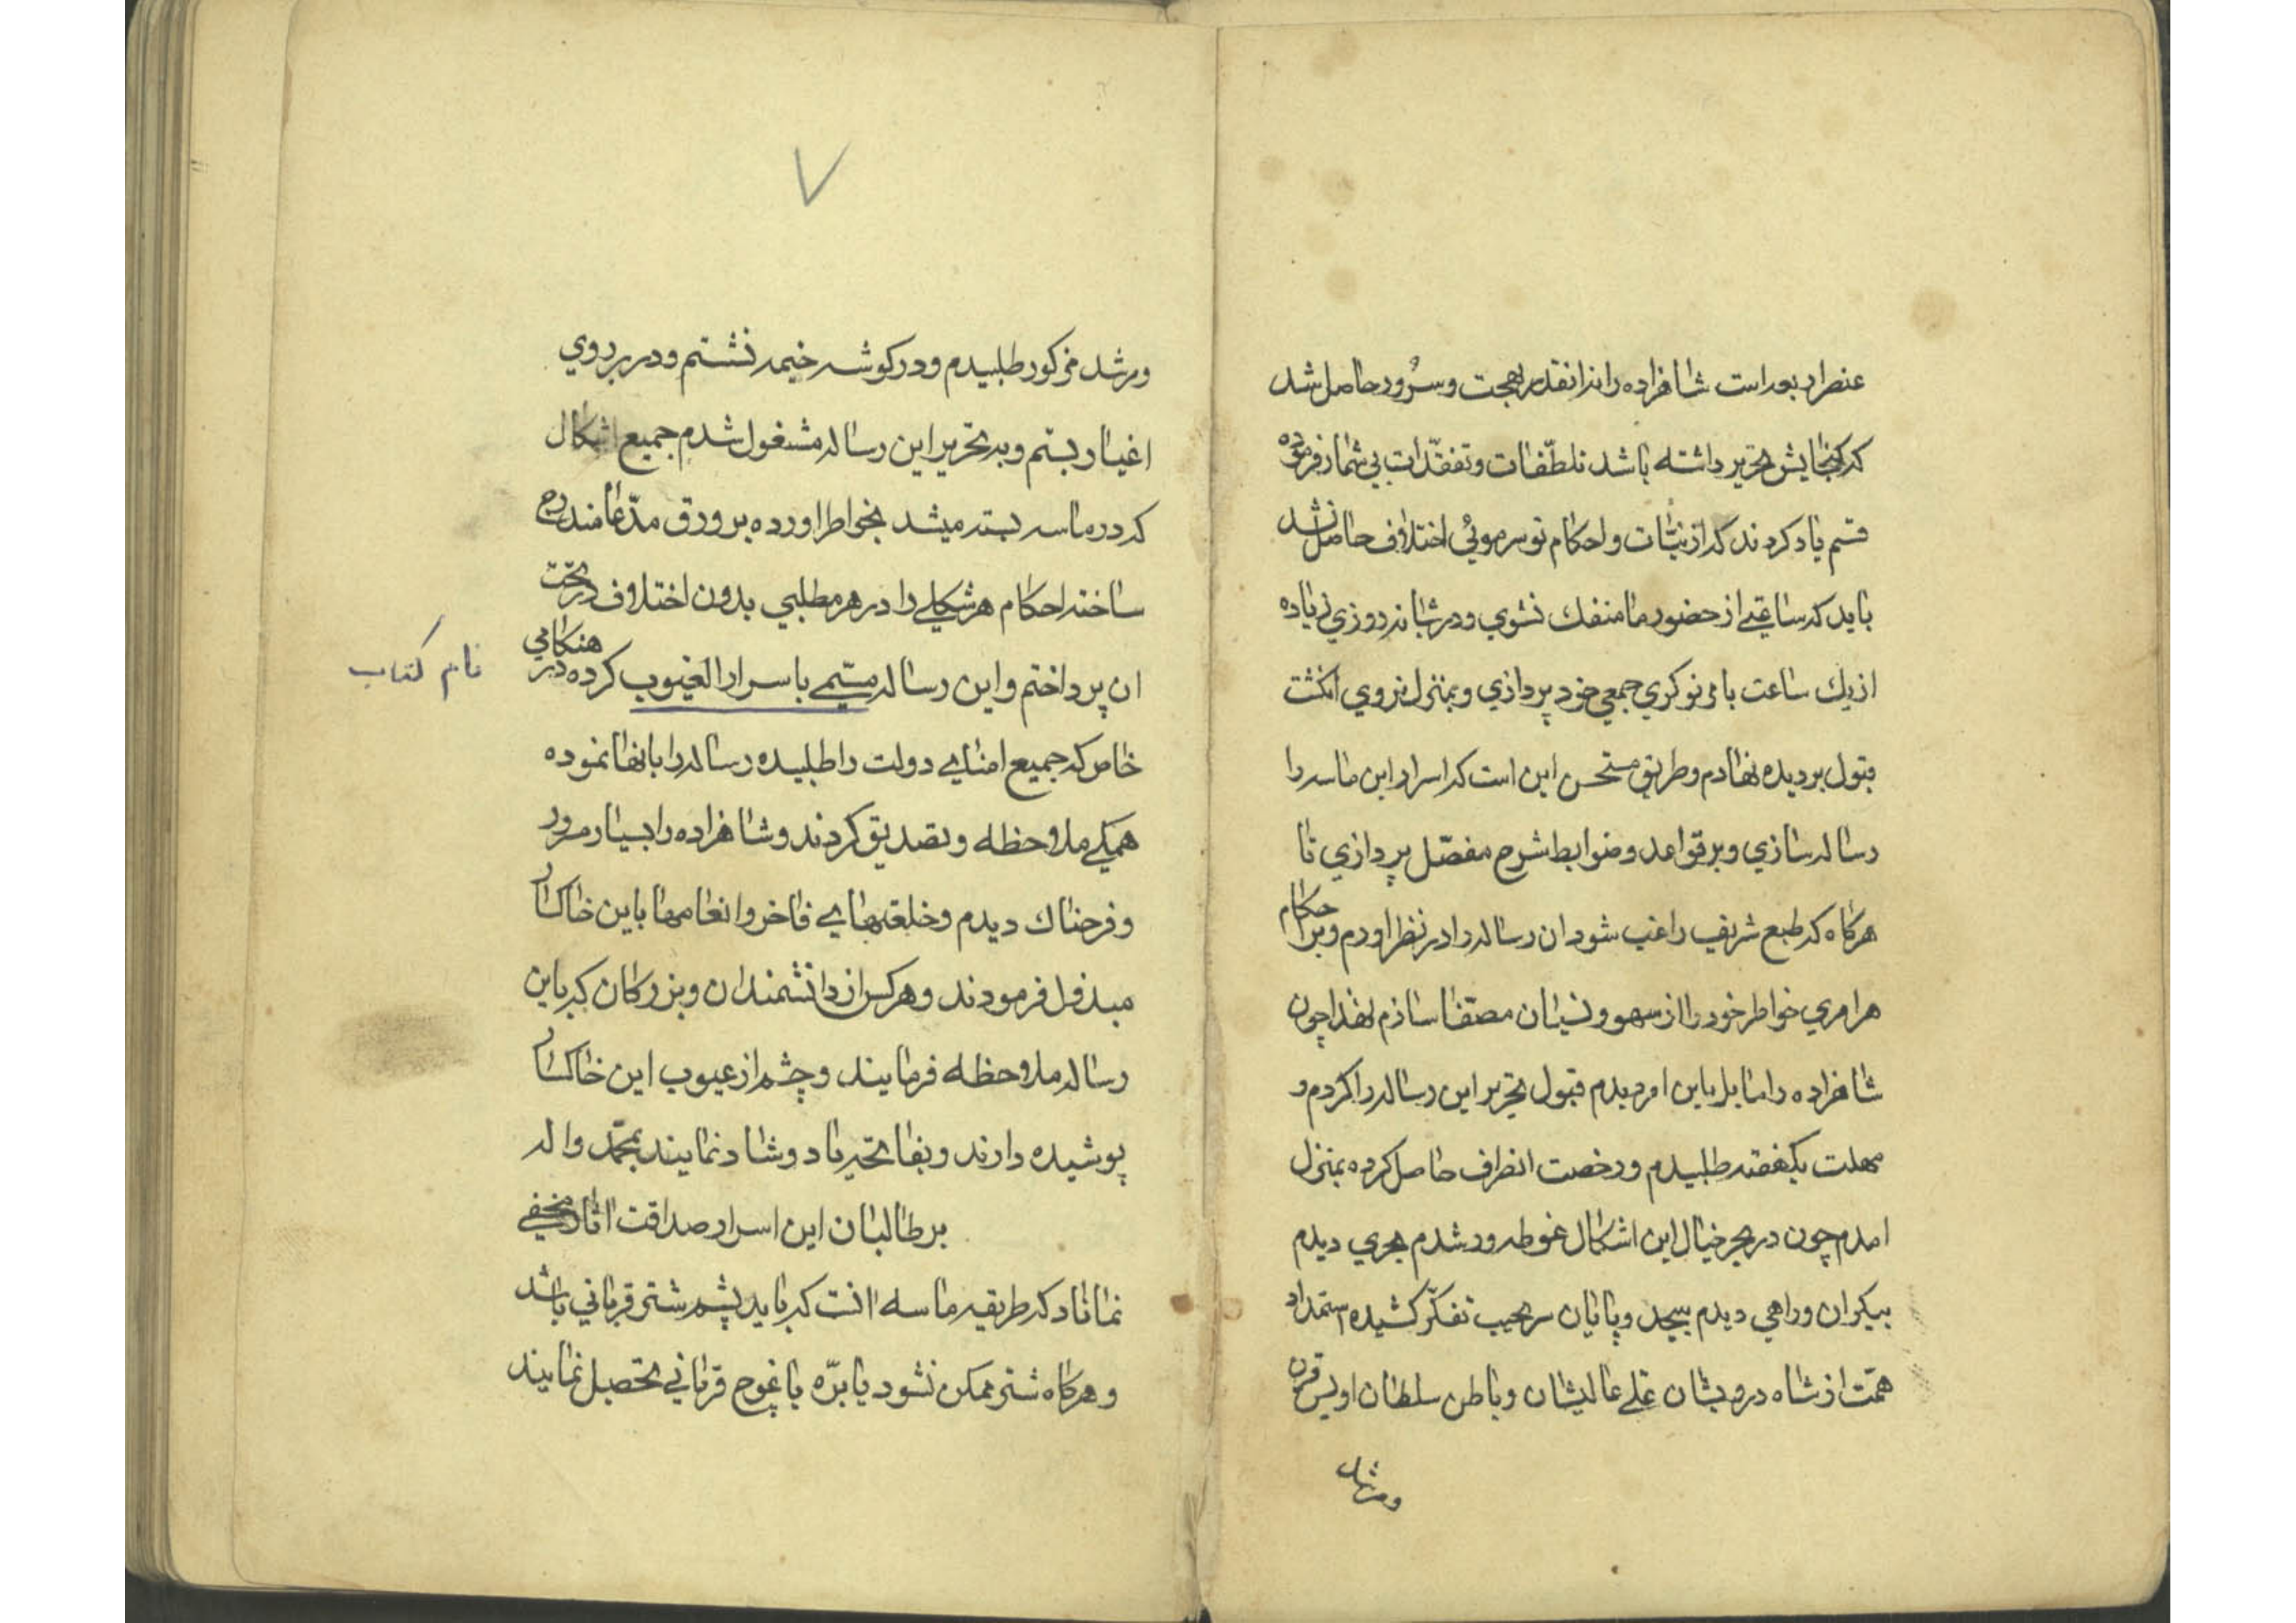 عنصر اربعه است شاهزاده را از انقدر بهجت و سرور حاصل شد
که گنجایش تحریر داشته باشد تلطّفات و تفقّدات بی شمار فرموده
قسم یاد کردند که از نیّات و احکام تو سر موئی اختلاف حاصل نشد
باید که ساعتی از حضور ما منفک نشوی و در شبانه روزی زیاده
از یک ساعت بامر نوکری جمعی خود پردازی و بمنزل نروی انکشت
قبول بر دیده نهادم و طریق مستحسن این است که اسرار این ماسه را
رساله سازی و بر قواعد و ضوابط شرح مفصّل پردازی تا
هرکاه که طبع شریف راغب شود ان رساله را در نظر اورم و بر احکام
هر امری خواطر خود را از سهو و نسیان مصفّا سازم لهذا چون
شاهزاده را مایل باین امر دیدم قبول تحریر این رساله را کردم و
مهلت یکهفته طلبیدم و رخصت انصراف حاصل کرده بمنزل
امدم چون در بحر خیال این اشکال غوطه ور شدم بحری دیدم
بیکران و راهی دیدم بیحد و پایان سر بجیب تفکّر کشیده استمداد
همّت از شاه درویشان علی عالیشان و باطن سلطان اویس قرن
و مرشد
۷
و مرشد مزکور طلبیدم و در کوشه خیمه نشستم و در بر روی
اغیار بستم و به تحریر این رساله مشغول شدم جمیع اشکال
که در ماسه بسته میشد بخواطر اورده بر ورق مدّعا مندرج
ساخته احکام هر شکلی را در هر مطلبی بدون اختلاف در تحت
ان پرداختم و این رساله مسمّی باسرار الغیوب کرده در هنکامی
نام کتاب
خاص که جمیع امنای دولت را طلبیده رساله را بانها نموده
همکی ملاحظه و تصدیق کردند و شاهزاده را بسیار مسرور
و فرحناک دیدم و خلعتهای فاخر و انعامها باین خاکسار
مبذول فرمودند و هر کس از دانشمندان و بزرکان که باین
رساله ملاحظه فرمایند و چشم از عیوب این خاکسار
پوشیده دارند و بفاتحه یاد و شاد نمایند بمحمّد و اله
بر طالبان این اسرار صداقت اثار مخفی
نماناد که طریقه ماسه انست که باید پشم شتر قربانی باشد
و هرکاه شتر ممکن نشود یا برّه یا غوچ قربانی تحصیل نمایند